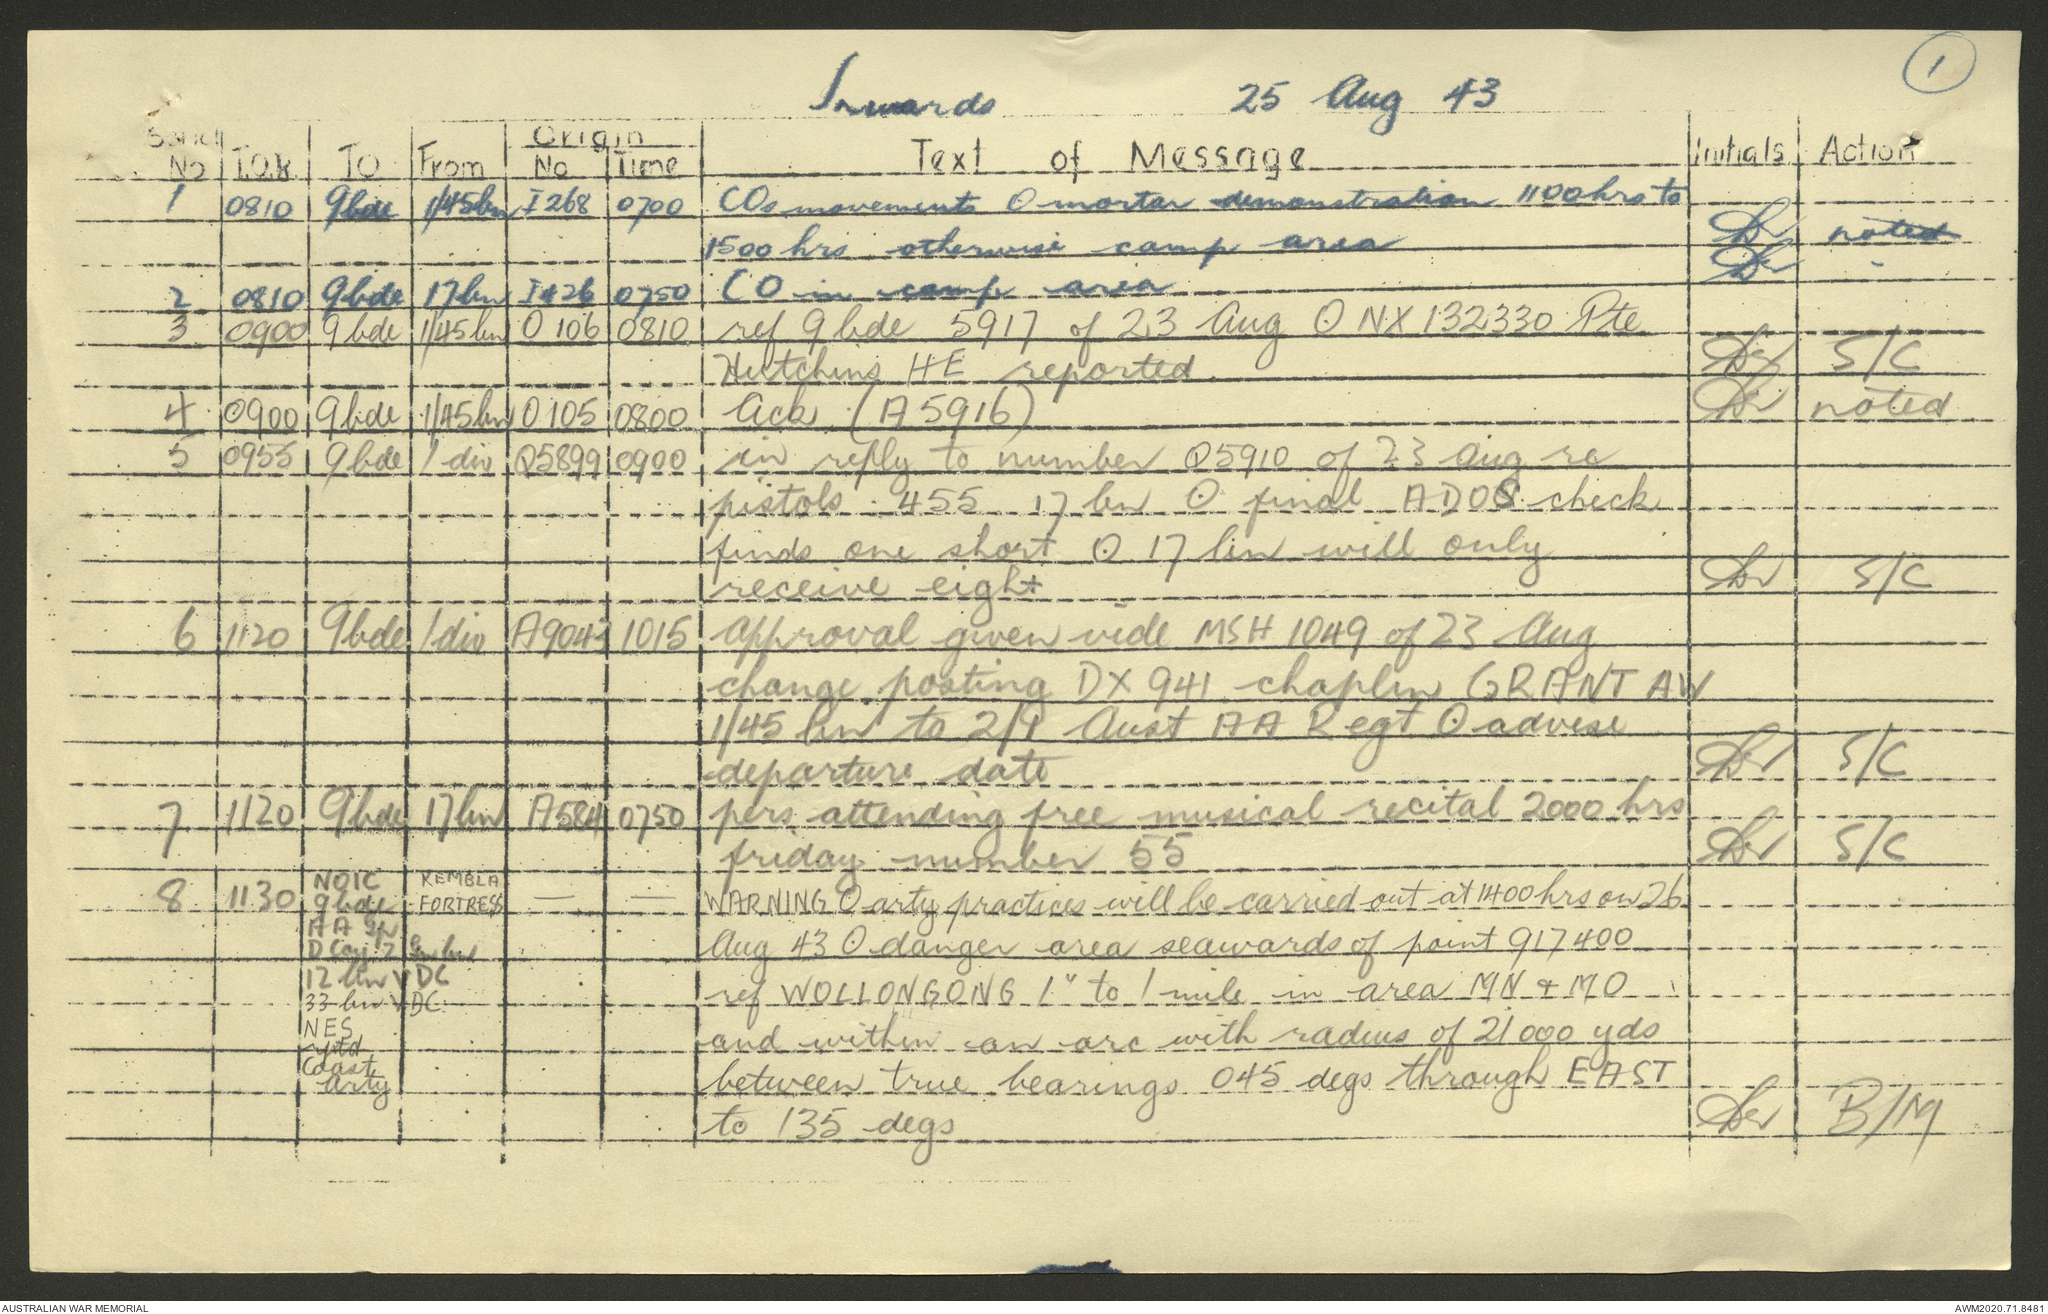 1
Inwards 25 Aug 43
Serial No T.O.R. TO From Origin No Time Text of Message Initials Action
1 0810 9 bde 1/45 bn I268 0700 COs movements O mortar demonstration 1100 hrs to
1500 hrs otherwise camp area noted
2 0810 9 bde 17 bn I426 0750 CO in camp area -
3 0900 9 bde 1/45 bn O 106 0810 ref 9 bde 5917 of 23 Aug O NX 132330 Pte
Hutchins HE reported S/C
4 0900 9 bde 1/45 bn O 105 0800 Ack (A 5916) noted
5 0955 9 bde 1 div Q5899 0900 in reply to number Q5910 of 23 Aug re
pistols .455 17 bn O final ADOS check
finds one short O 17 bn will only
receive eight S/C
6 1120 9 bde 1 div A9043 1015 approval given vide MSH 1049 of 23 Aug
change posting DX 941 chaplin GRANT AW
1/45 bn to 2/9 Aust AA Regt O advise
departure date S/C
7 1120 9 bde 17 bn A584 0750 pers attending free musical recital 2000 hrs
friday number 55 S/C
8 1130 NOIC KEMBLA
9 bde FORTRESS — — WARNING O arty practices will be carried out at 1400 hrs on 26
AA
Aug 43 O danger area seawards of point 917400
12 bn VDC ref WOLLONGONG 1" to 1 mile in area MN & MO
33 bn VDC
NES and within an arc with radius of 21000 yds
Coast
Arty between true bearings 045 degs through EAST
to 135 degs B/M
AUSTRALIAN WAR MEMORIAL AWM2020.71.8481